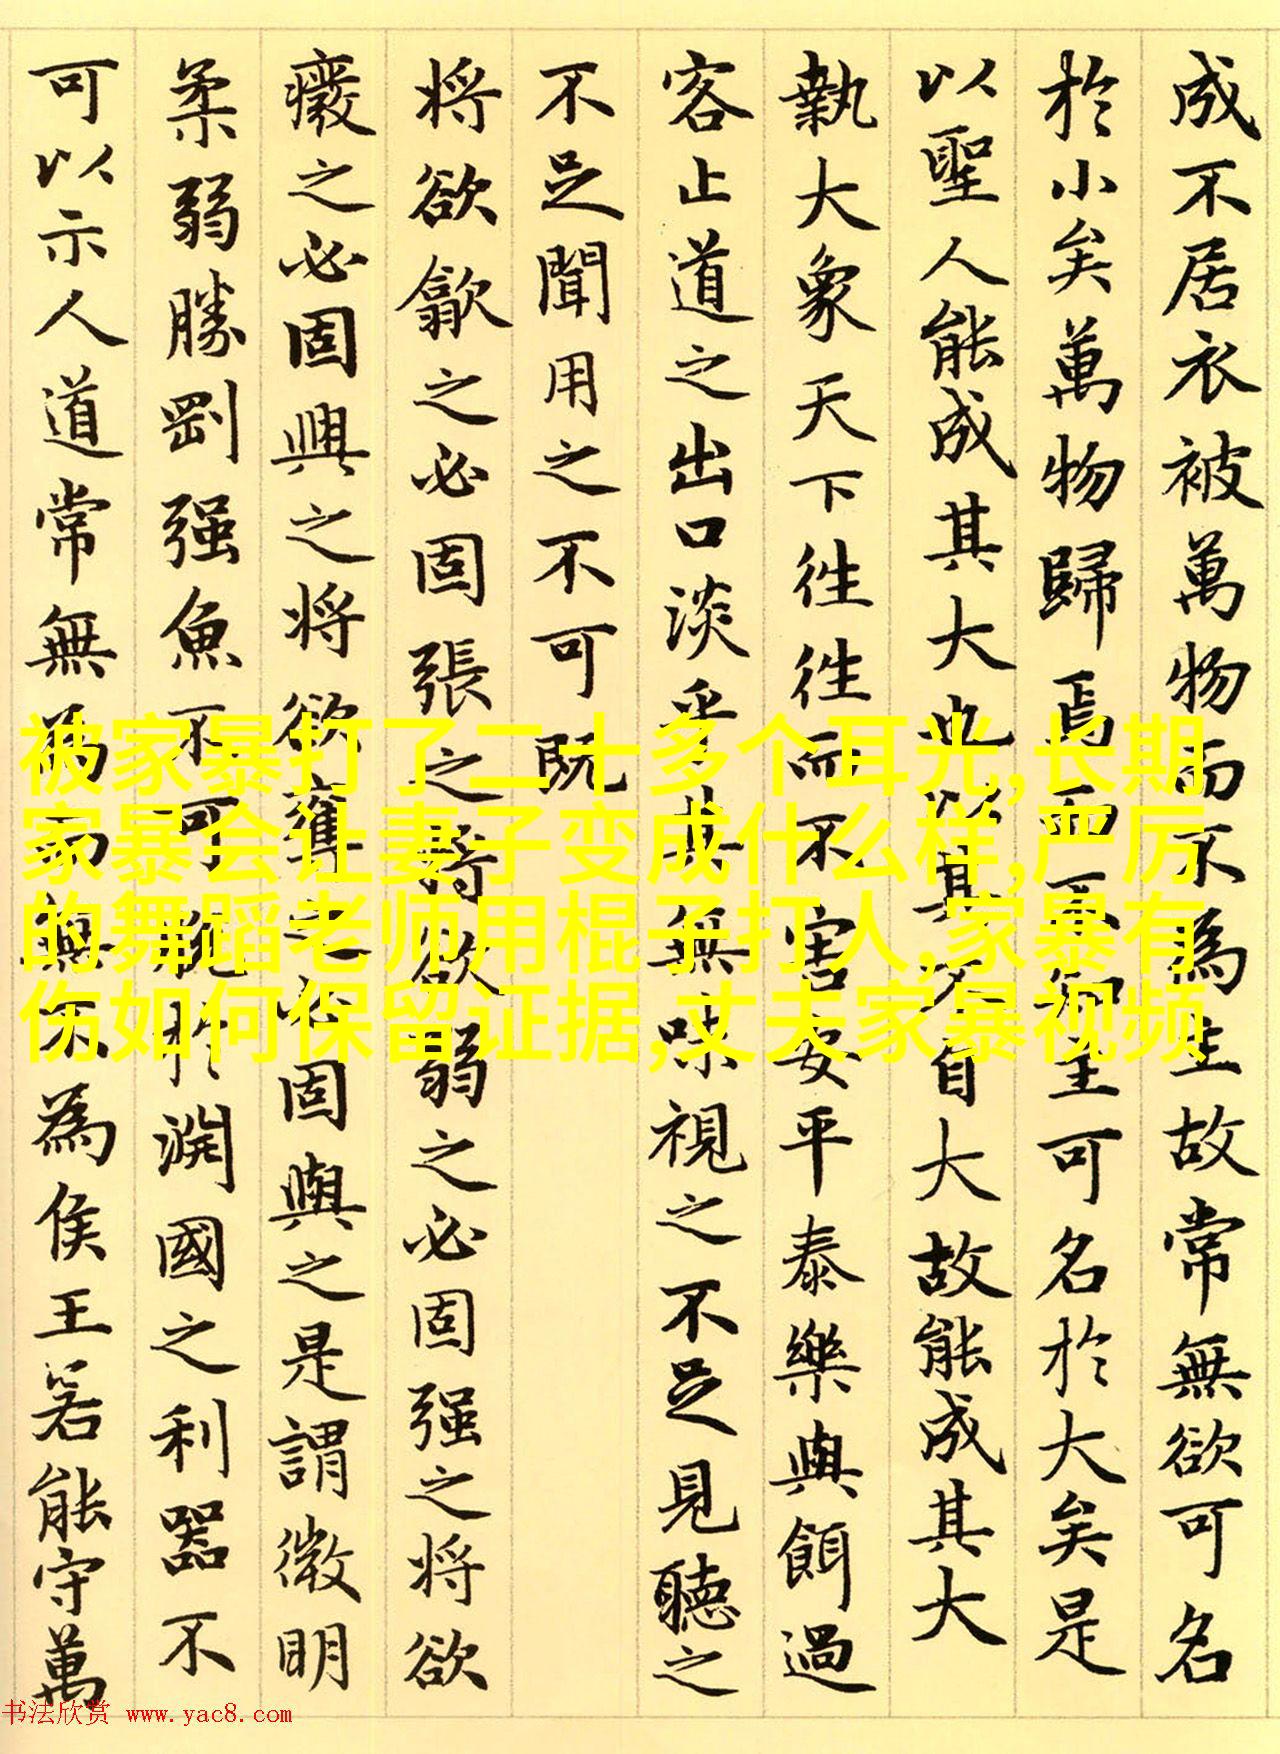 成不居衣被萬物而不為主故常無欲可名
於小矣萬物歸焉而不知主可名於大矣是
以聖人能成其大也以其不自大故能成其大
執大象天下往往而不害安平泰樂與餌過
客止道之出口淡乎其無味視之不足見聽之
不足聞用之不可既
将欲歙之必固張之将欲弱之必固强之将欲
癈之必固興之将欲奪之必固與之是謂微明
柔弱勝剛强魚不可脱於渊國之利器不
可以示人道常無為而無不為侯王若能守萬
被家暴打了二十多个耳光,长期
家暴会让妻子变成什么样,严厉
的舞蹈老师用棍子打人,家暴有
伤如何保留证据,丈夫家暴视频
书法欣赏 www.yac8.com